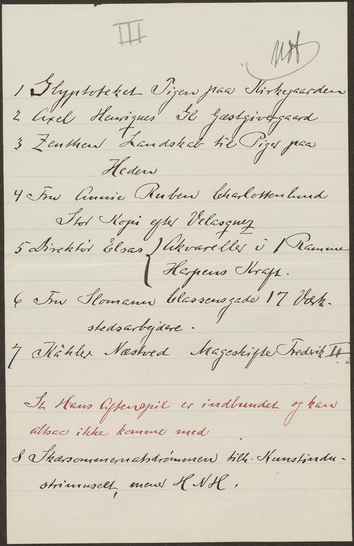 III
1 Glyptoteket Pigen paa Kirkegaarden
2 Axel Henriques Gl Gæstgivergaard
3 Zeuthen Landskab til Piger paa
Heden
4 Fru Annie Ruben Charlottenlund
Stor Kopi efter Velasquez
5 Direktør Elsas Akvareller i 1 Ramme
Harpens Kraft.
6 Fru Slomann Classensgade 17 Værk-
stedsarbejdere.
7 Kähler Næstved Mageskifte Fredrik II
St Hans Aftenspil er indbundet og kan
altsaa ikke komme med
8 Skærsommernatsdrømmen tilh. Kunstindu-
strimuseet, mener H N H.